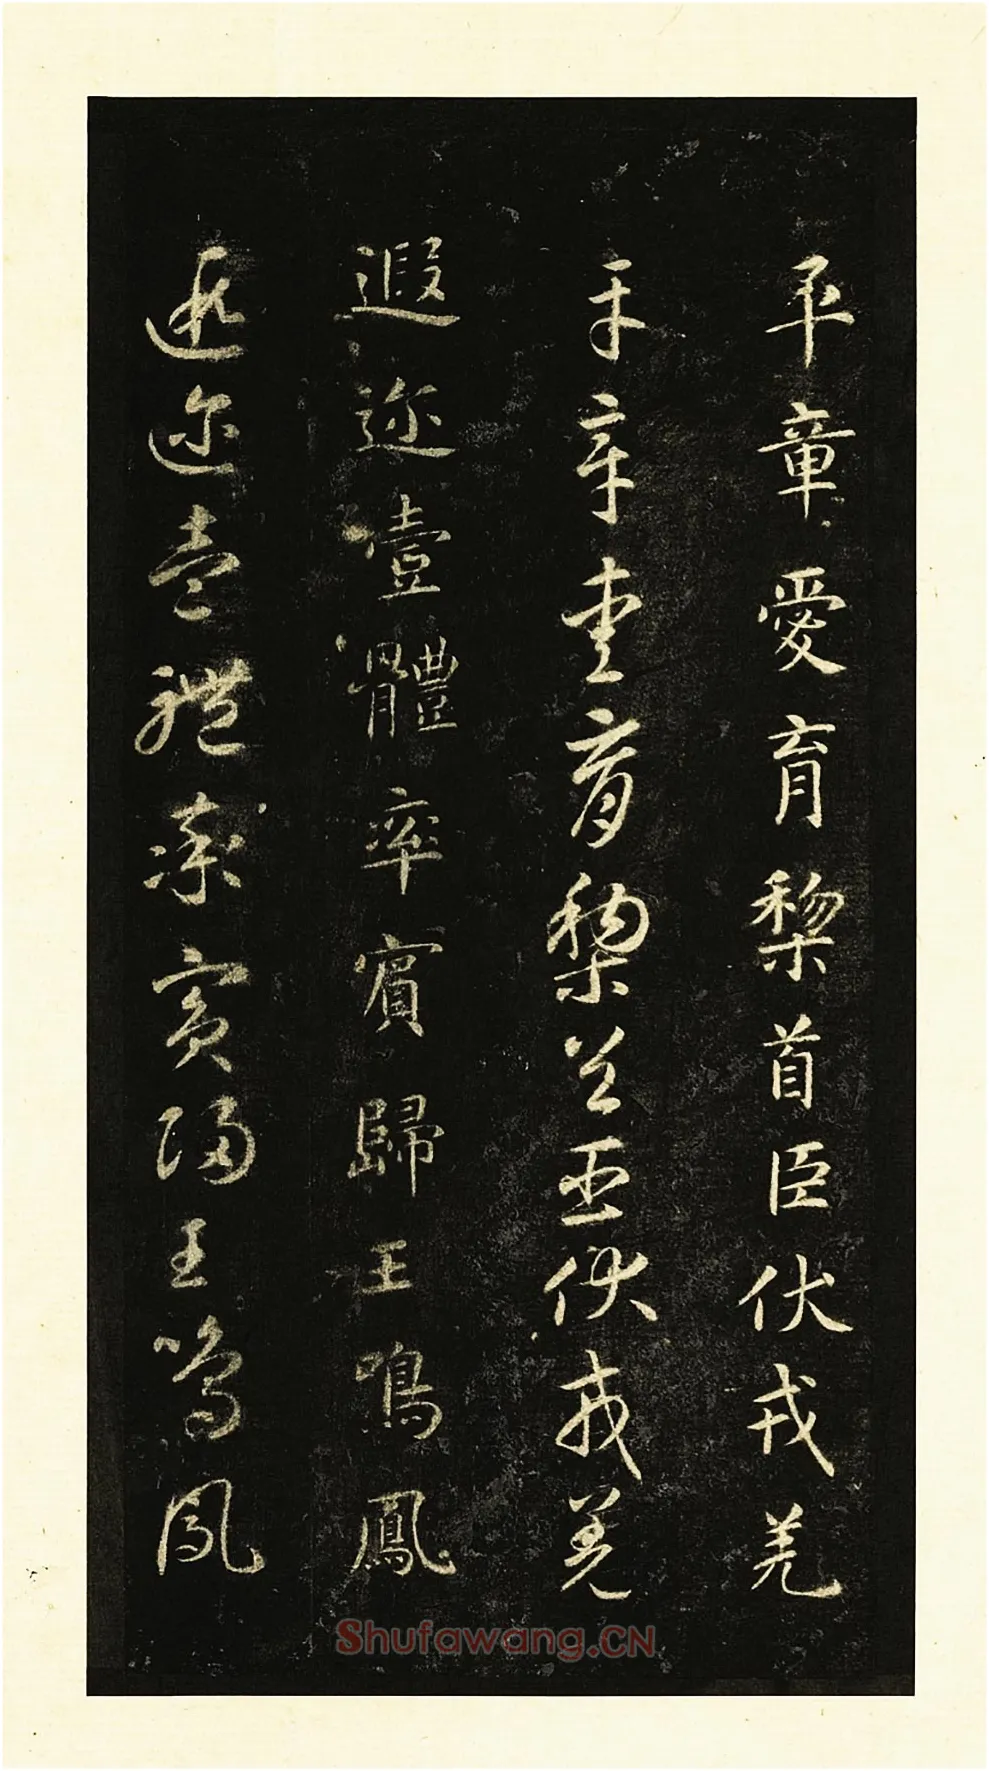 平章愛育黎首臣伏戎羌
平章愛育黎首臣伏戎羌
遐邇壹體率賓歸王鳴鳳
遐邇壹體率賓歸王鳴鳳
Shufawang.CN